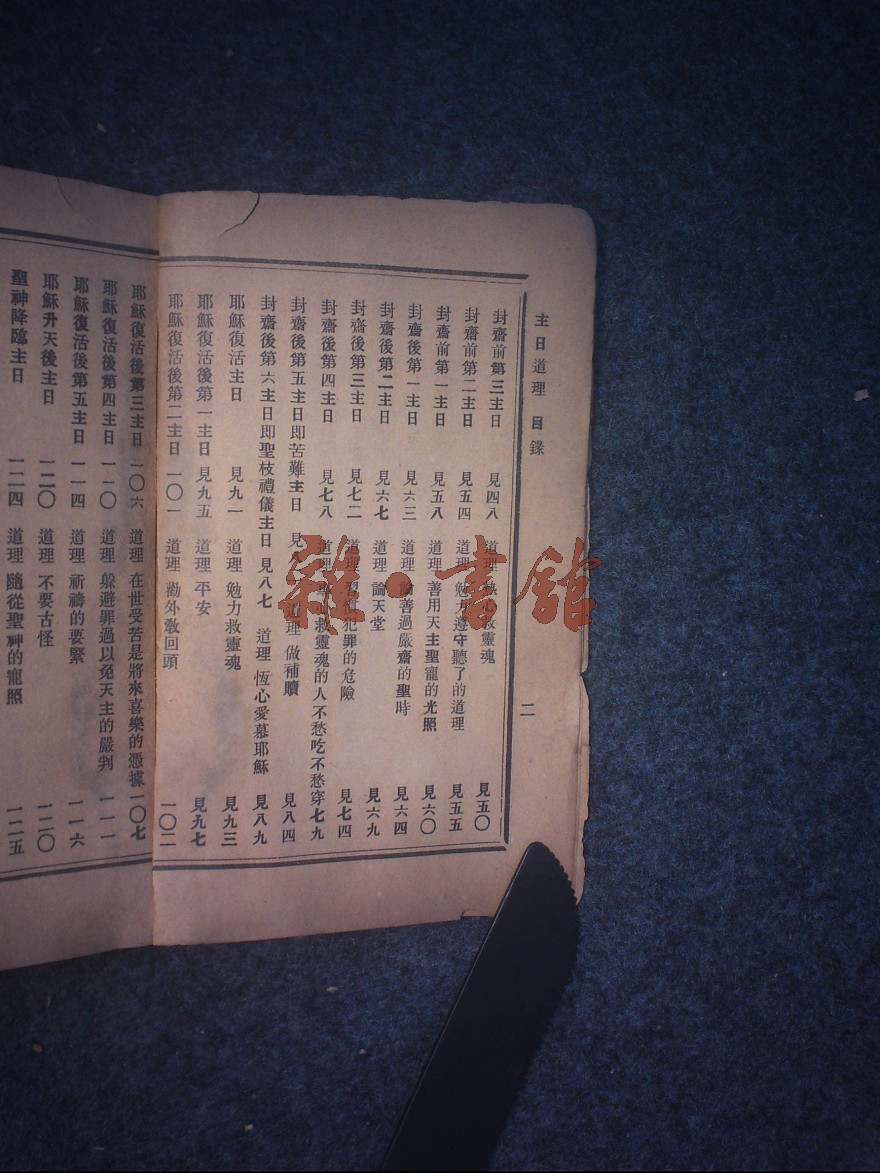 主日道理 目錄 二
封齋前第三主日 見四八 道理 熱心救靈魂 見五〇
封齋前第二主日 見五四 道理 勉力遵守聽了的道理 見五五
封齋前第一主日 見五八 道理 善用天主聖寵的光照 見六〇
封齋後第一主日 見六三 道理 論善過嚴齋的聖時 見六四
封齋後第二主日 見六七 道理 論天堂 見六九
封齋後第三主日 見七二 道理 犯罪的危險 見七四
封齋後第四主日 見七八 道理 心救靈魂的人不愁吃不愁穿 七九
封齋後第五主日即苦難主日 見八 道理 做補贖 見八四
封齋後第六主日即聖枝禮儀主日 見八七 道理 恆心愛慕耶穌 見八九
耶穌復活主日 見九一 道理 勉力救靈魂 見九三
耶穌復活後第一主日 見九五 道理 平安 見九七
耶穌復活後第二主日 一〇一 道理 勸外教回頭 一〇二
耶穌復活後第三主日 一〇六 道理 在世受苦是將來喜樂的憑據 一〇七
耶穌復活後第四主日 一一〇 道理 躲避罪過以免天主的嚴判 一一一
耶穌復活後第五主日 一一四 道理 祈禱的要緊 一一六
耶穌升天後主日 一二〇 道理 不要古怪 一二〇
聖神降臨主日 一二四 道理 隨從聖神的寵照 一二五
雜·書館